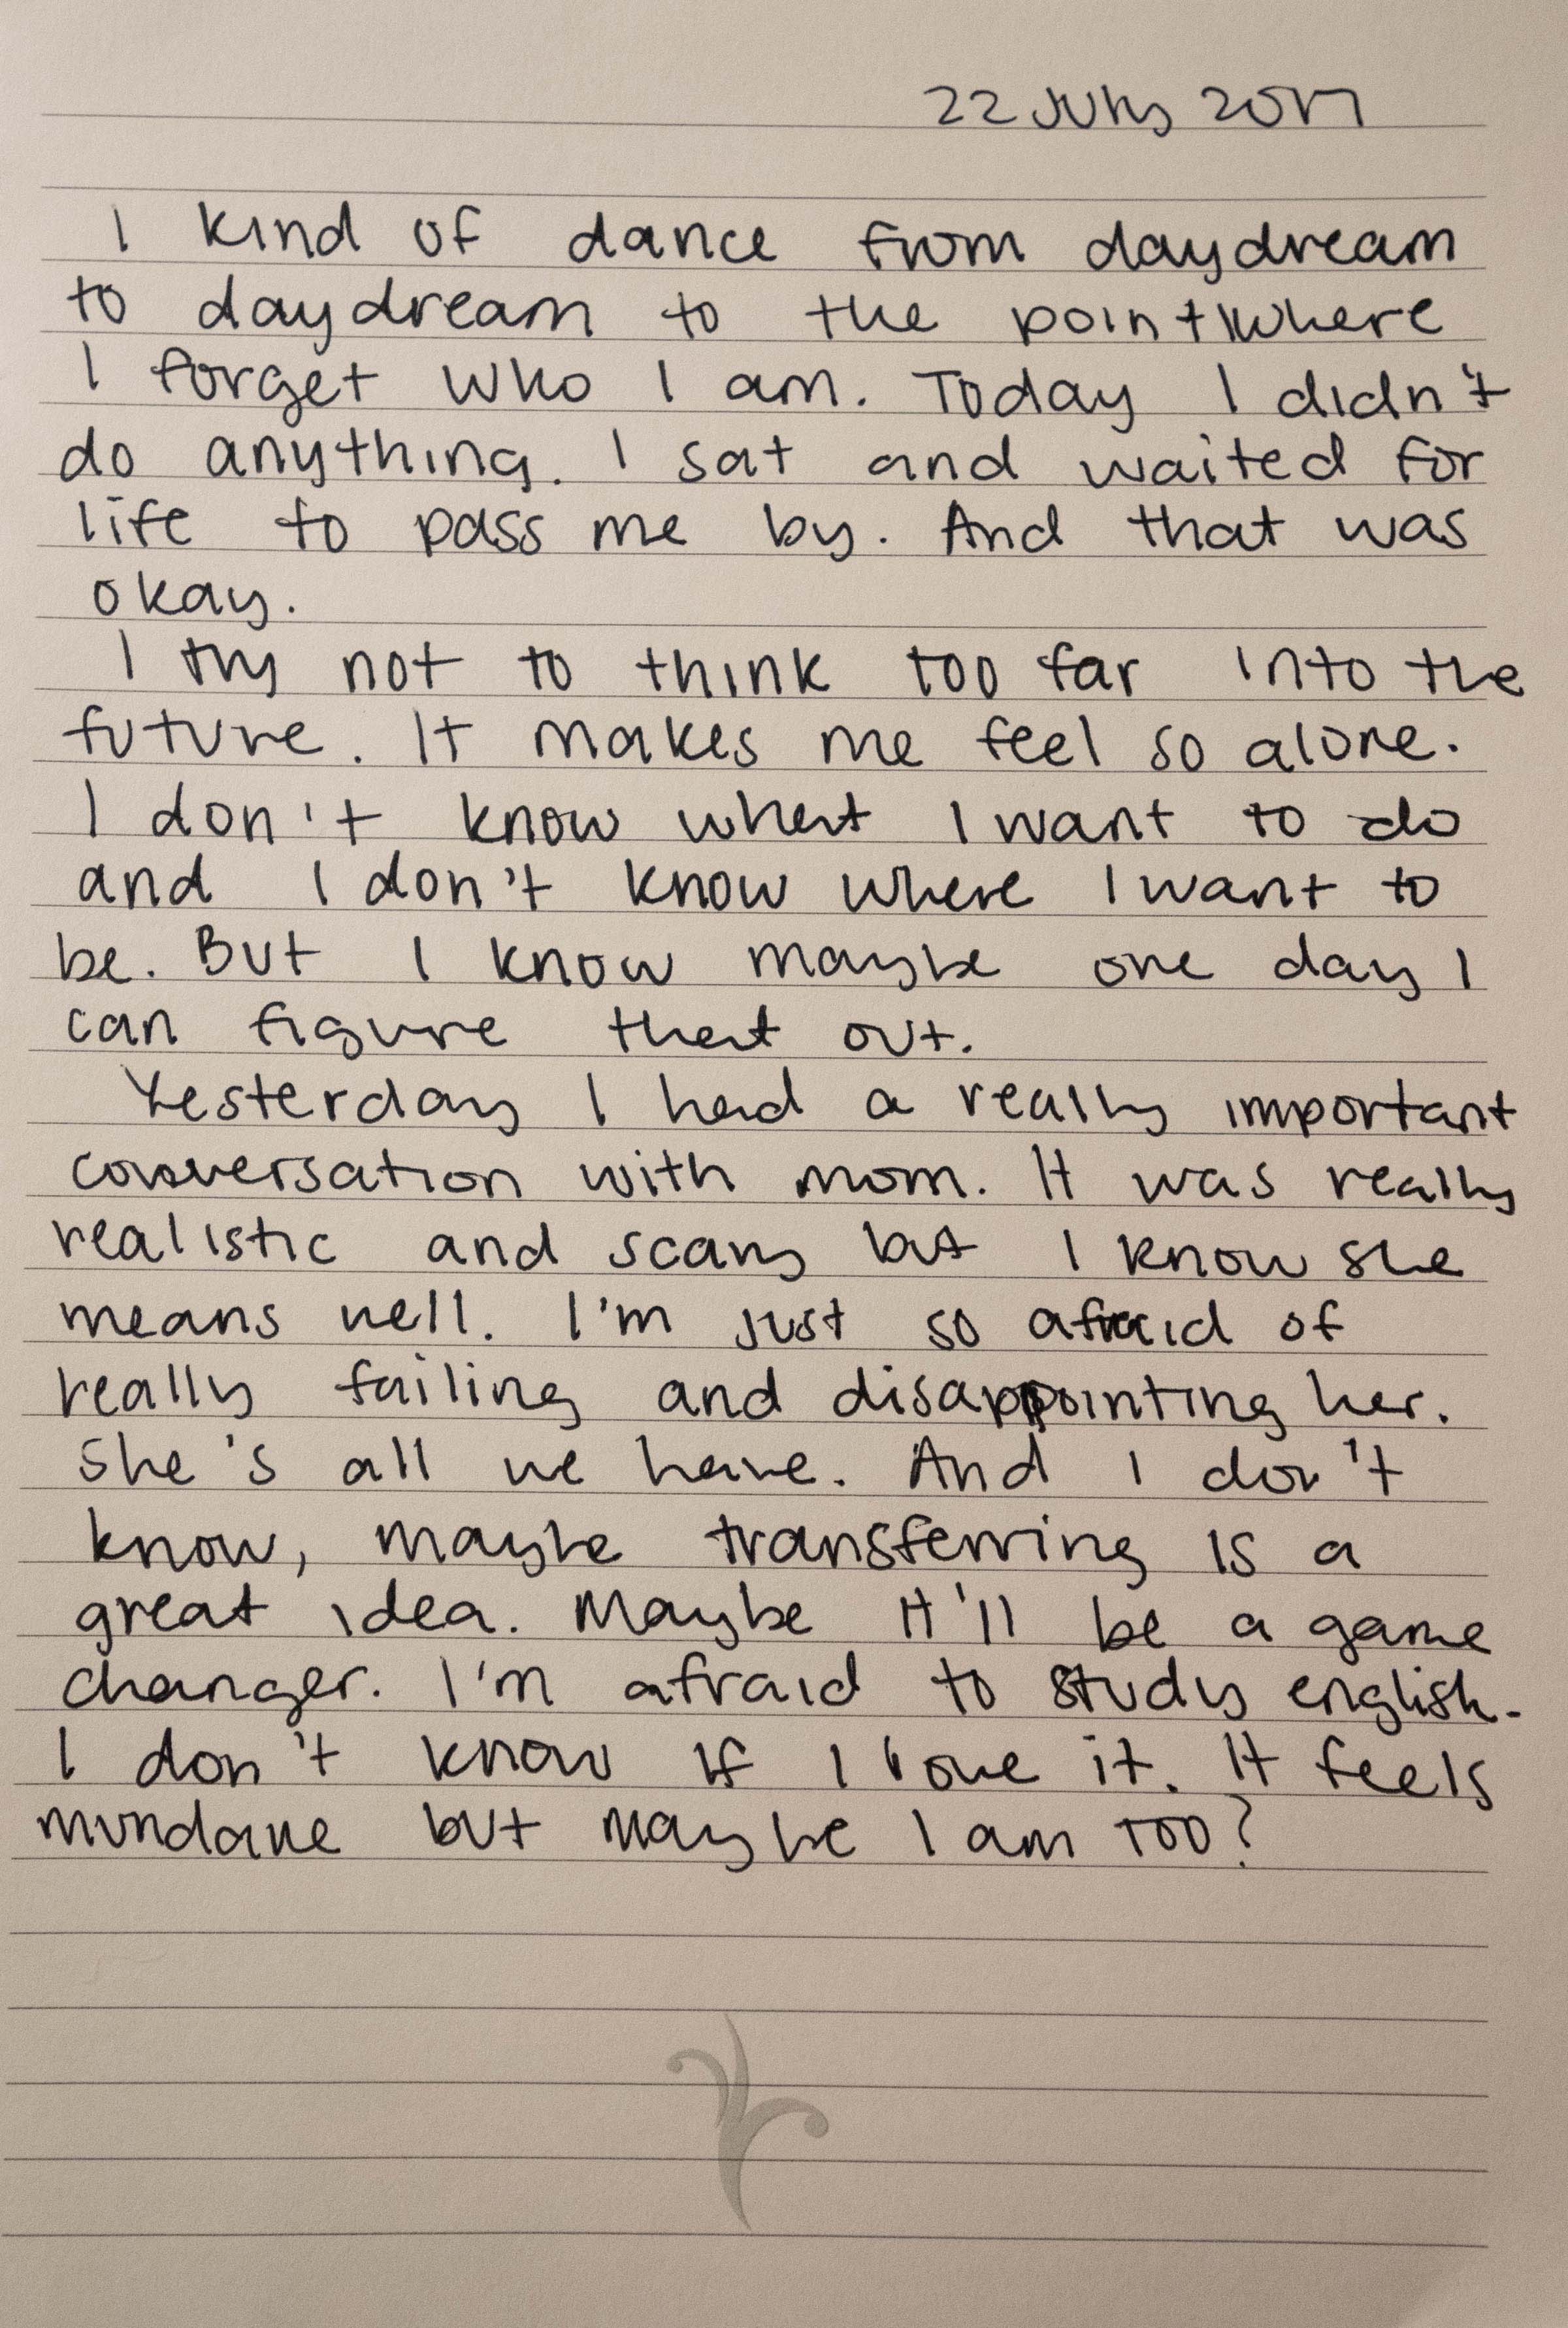 22 July 2017
I kind of dance from daydream
to daydream to the point where
I forget who I am. Today I didn't
do anything. I sat and waited for
life to pass me by. And that was
okay.
I try not to think too far into the
future. It makes me feel so alone.
I don't know what I want to do
and I don't know where I want to
be. But I know maybe one day I
can figure that out.
Yesterday I had a really important
conversation with mom. It was really
realistic and scary but I know she
means well. I'm just so afraid of
really failing and disappointing her.
She's all we have. And I don't
know, maybe transferring is a
great idea. Maybe it'll be a game
changer. I'm afraid to study english.
I don't know if I love it. It feels
mundane but maybe I am too?